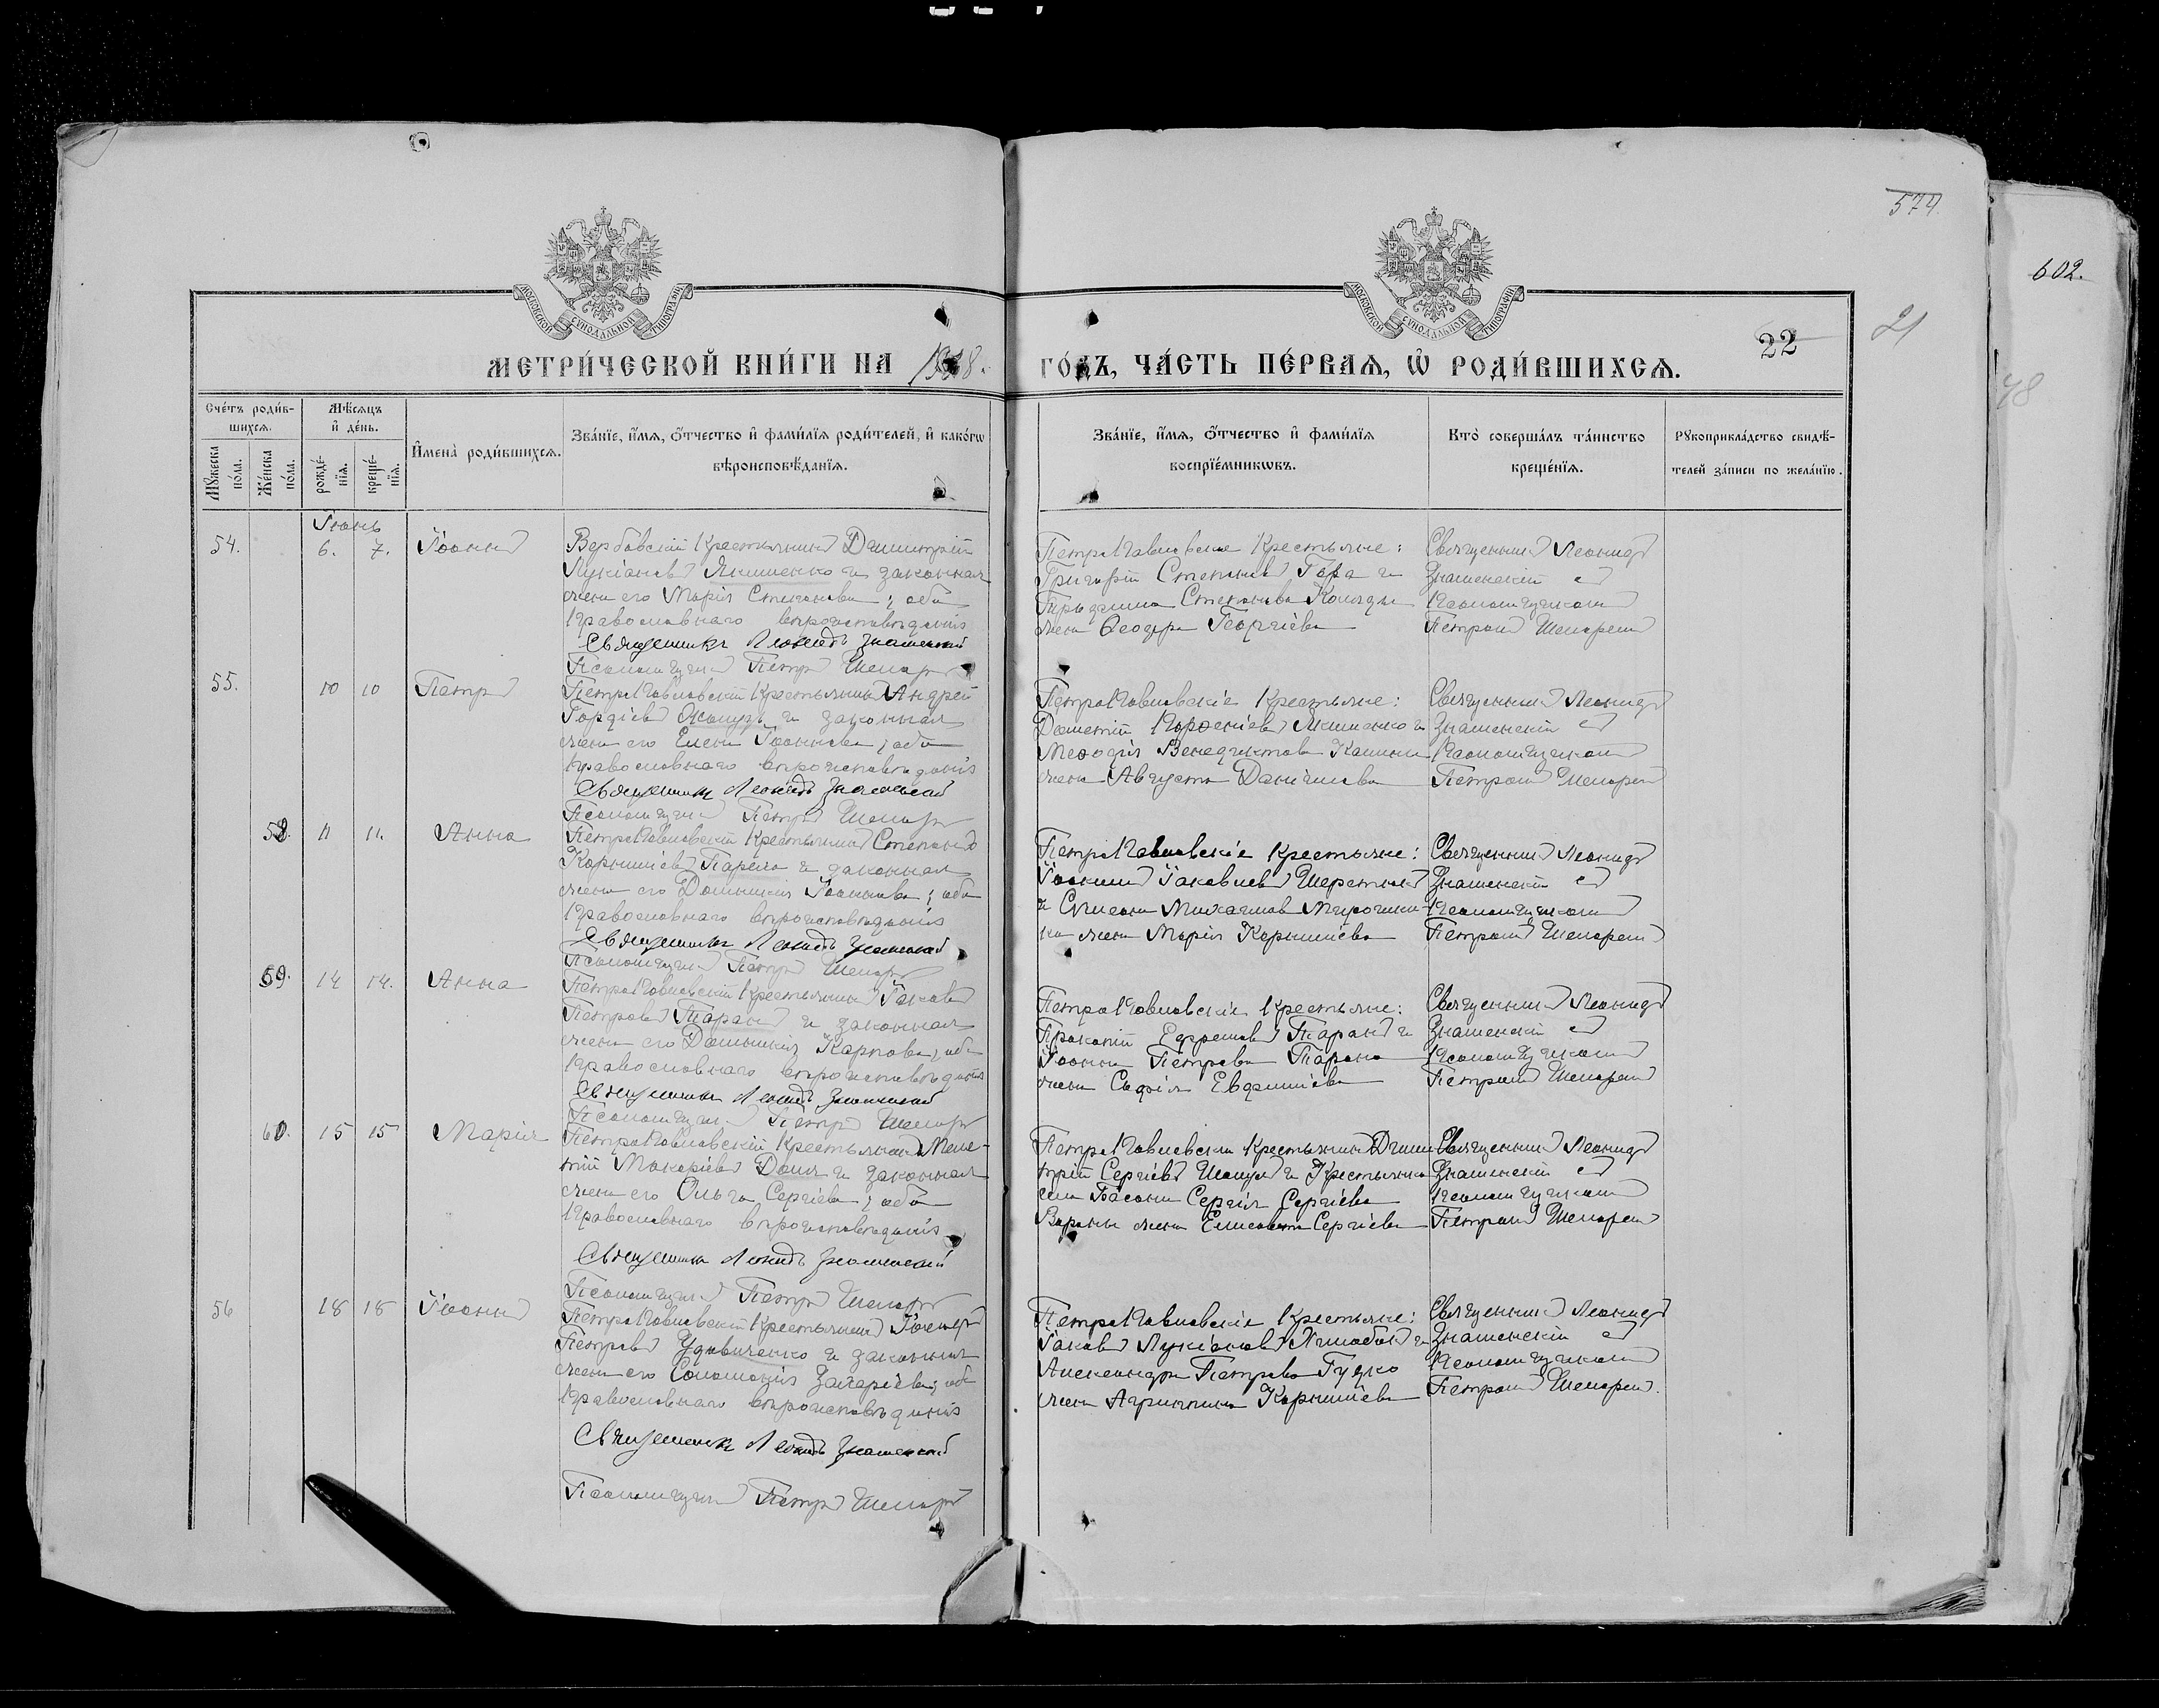 574.
602.
21
48
22
МОСКОВСКОЙ СѴНОДАЛЬНОЙ ТИПОГРАФІИ
МОСКОВСКОЙ СѴНОДАЛЬНОЙ ТИПОГРАФІИ
МЕТРИ́ЧЕСКОЙ КНИ́ГИ НА
ГО́ДЪ, ЧА́СТЬ ПЕ́РВАЯ, Ѡ҆ РОДИ́ВШИХСѦ.
Сче́тъ роди́вшихсѧ.
Мꙋ́жеска по́ла.
Же́нска по́ла.
Мѣ́сѧцъ и҆ де́нь.
рожде́нїѧ.
креще́нїѧ.
И҆мена̀ роди́вшихсѧ.
Зва́нїе, и҆́мѧ, ѻ҆́тчество и҆ фами́лїѧ роди́телей, и҆ како́гѡ
вѣроисповѣ́данїѧ.
Зва́нїе, и҆́мѧ, ѻ҆́тчество и҆ фами́лїѧ
воспрїе́мникѡвъ.
Кто̀ соверша́лъ та́инство
креще́нїѧ.
Рꙋкоприкла́дство свидѣ́-
телей за́писи по жела́нїю.
Іюнь
54. 6. 7. Іоаннъ
Вербовскій Крестьянинъ Димитрій
Лукіановъ Якименко и законная
жена его Марія Степанова; оба
Православнаго вѣроисповѣданія
Священникъ Леонидъ Знаменский
Псаломщикъ Петръ Шепаръ
ПетроПавловскіе Крестьяне:
Григорій Степановъ Гора и
жена Ѳеодора Георгіева
Священникъ Леонидъ
Знаменскій съ
Псаломщикомъ
Петромъ Шепаремъ
55. 10 10 Петръ
ПетроПавловскій Крестьянинъ Андрей
Гордіевъ и законная
жена его Елена Іоаннова; оба
Православнаго вѣроисповѣданія
Священникъ Леонидъ Знаменский
Псаломщикъ Петръ Шепаръ
ПетроПавловскіе Крестьяне:
Якименко и
Меѳодія Венедиктова
жена Августа Даніилова
Священникъ Леонидъ
Знаменскій съ
Псаломщикомъ
Петромъ Шепаремъ
58. 11 11. Анна
ПетроПавловскій Крестьянинъ Степанъ
Корниліевъ и законная
жена его Домникія Іоаннова; оба
Православнаго вѣроисповѣданія
Священникъ Леонидъ Знаменский
Псаломщикъ Петръ Шепаръ
ПетроПавловскіе Крестьяне:
Іоакимъ Іаковлевъ
и Симеона Михаилова Мирошни-
ка жена Марія Корниліева
Священникъ Леонидъ
Знаменскій съ
Псаломщикомъ
Петромъ Шепаремъ
59. 14 14. Анна
ПетроПавловскій Крестьянинъ Іаковъ
Петровъ Таранъ и законная
жена его Домникія Карпова; оба
Православнаго вѣроисповѣданія
Священникъ Леонидъ Знаменский
Псаломщикъ Петръ Шепаръ
ПетроПавловскіе Крестьяне:
Прокопій Ефремовъ Таранъ и
Іоанна Петрова Тарана
жена Софія Евфиміева
Священникъ Леонидъ
Знаменскій съ
Псаломщикомъ
Петромъ Шепаремъ
60. 15 15 Марія
ПетроПавловскій Крестьянинъ Меле-
тій Макаріевъ и законная
жена его Ольга Сергіева; оба
Православнаго вѣроисповѣданія
Священникъ Леонидъ Знаменский
Псаломщикъ Петръ Шепаръ
ПетроПавловскій Крестьянинъ Дими-
трій Сергіевъ и Крестьянина
села Басани Сергія Сергіева
жена Елисавета Сергіева
Священникъ Леонидъ
Знаменскій съ
Псаломщикомъ
Петромъ Шепаремъ
56 18 18 Іоаннъ
ПетроПавловскій Крестьянинъ
Петровъ Удовиченко и законная
жена его Соломонія Захаріева; оба
Православнаго вѣроисповѣданія
Священникъ Леонидъ Знаменский
Псаломщикъ Петръ Шепаръ
ПетроПавловскіе Крестьяне:
Іаковъ Лукіановъ и
Александра Петрова Гудко
жена Агриппина Корниліева
Священникъ Леонидъ
Знаменскій съ
Псаломщикомъ
Петромъ Шепаремъ.